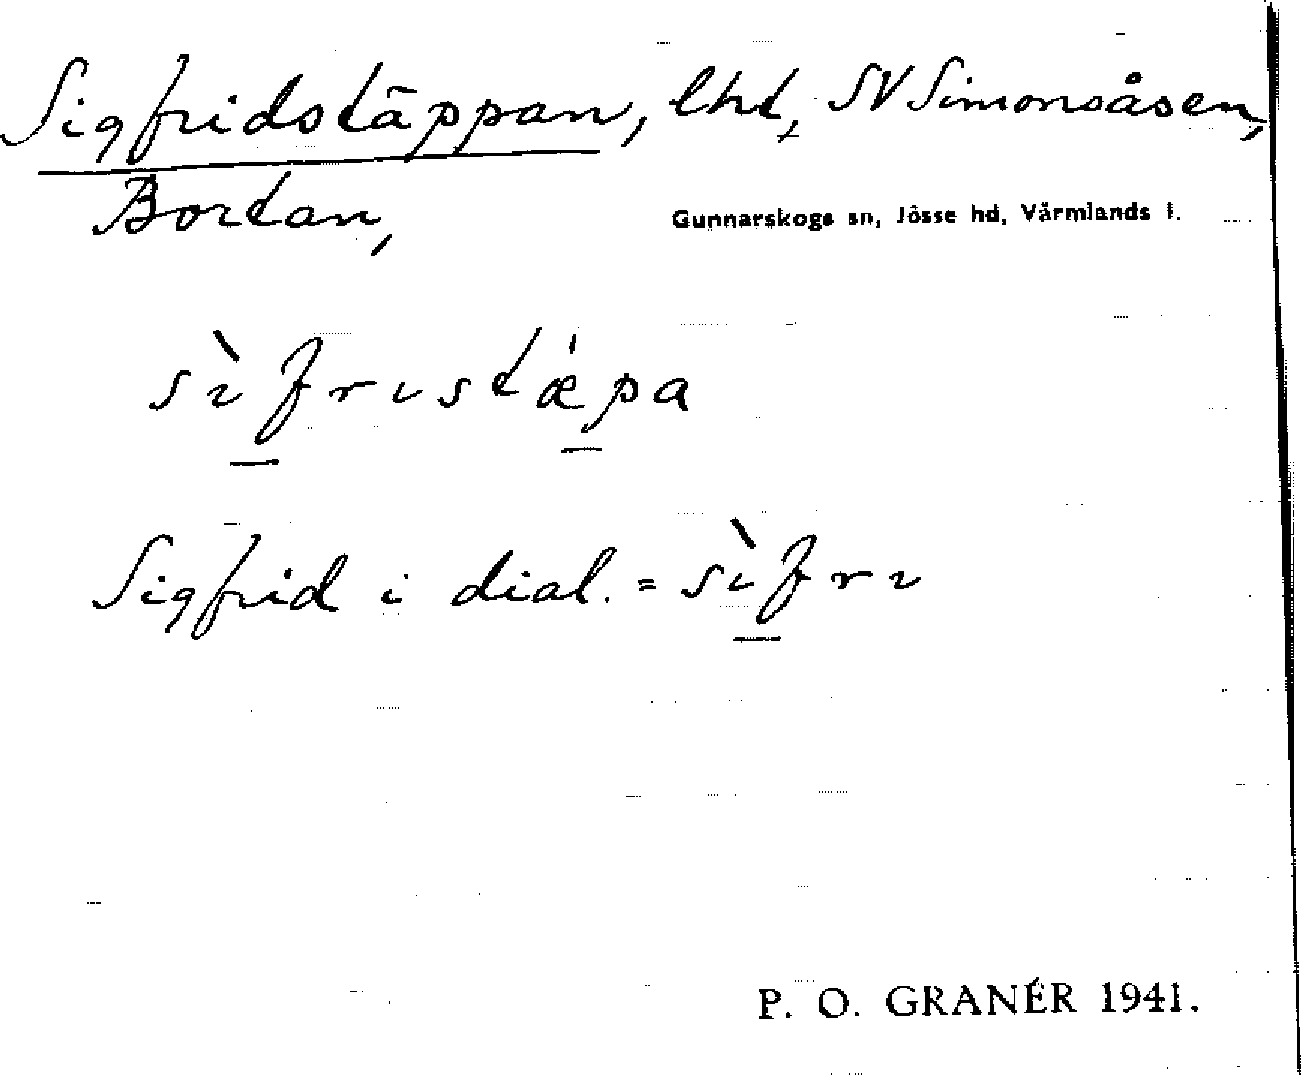 Sigfridstäppan, lht, SV Simonsåsen,
Bortan,
Gunnarskogs sn, Jösse hd, Värmlands l.
sìfrɩstǽpa
Sigfrid i dial. = sìfrɩ
P. O. GRANÉR 1941.